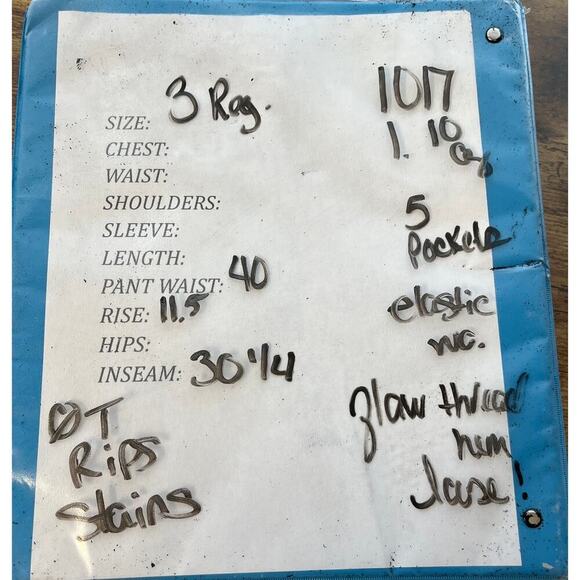 SIZE: 3 Reg.
CHEST:
WAIST:
SHOULDERS:
SLEEVE:
LENGTH:
PANT WAIST: 40
RISE: 11.5
HIPS:
INSEAM: 30 1/4
ØT
Rips
Stains
1017
1. 10
5
Pockets
elastic
flaw thread
hem
loose!